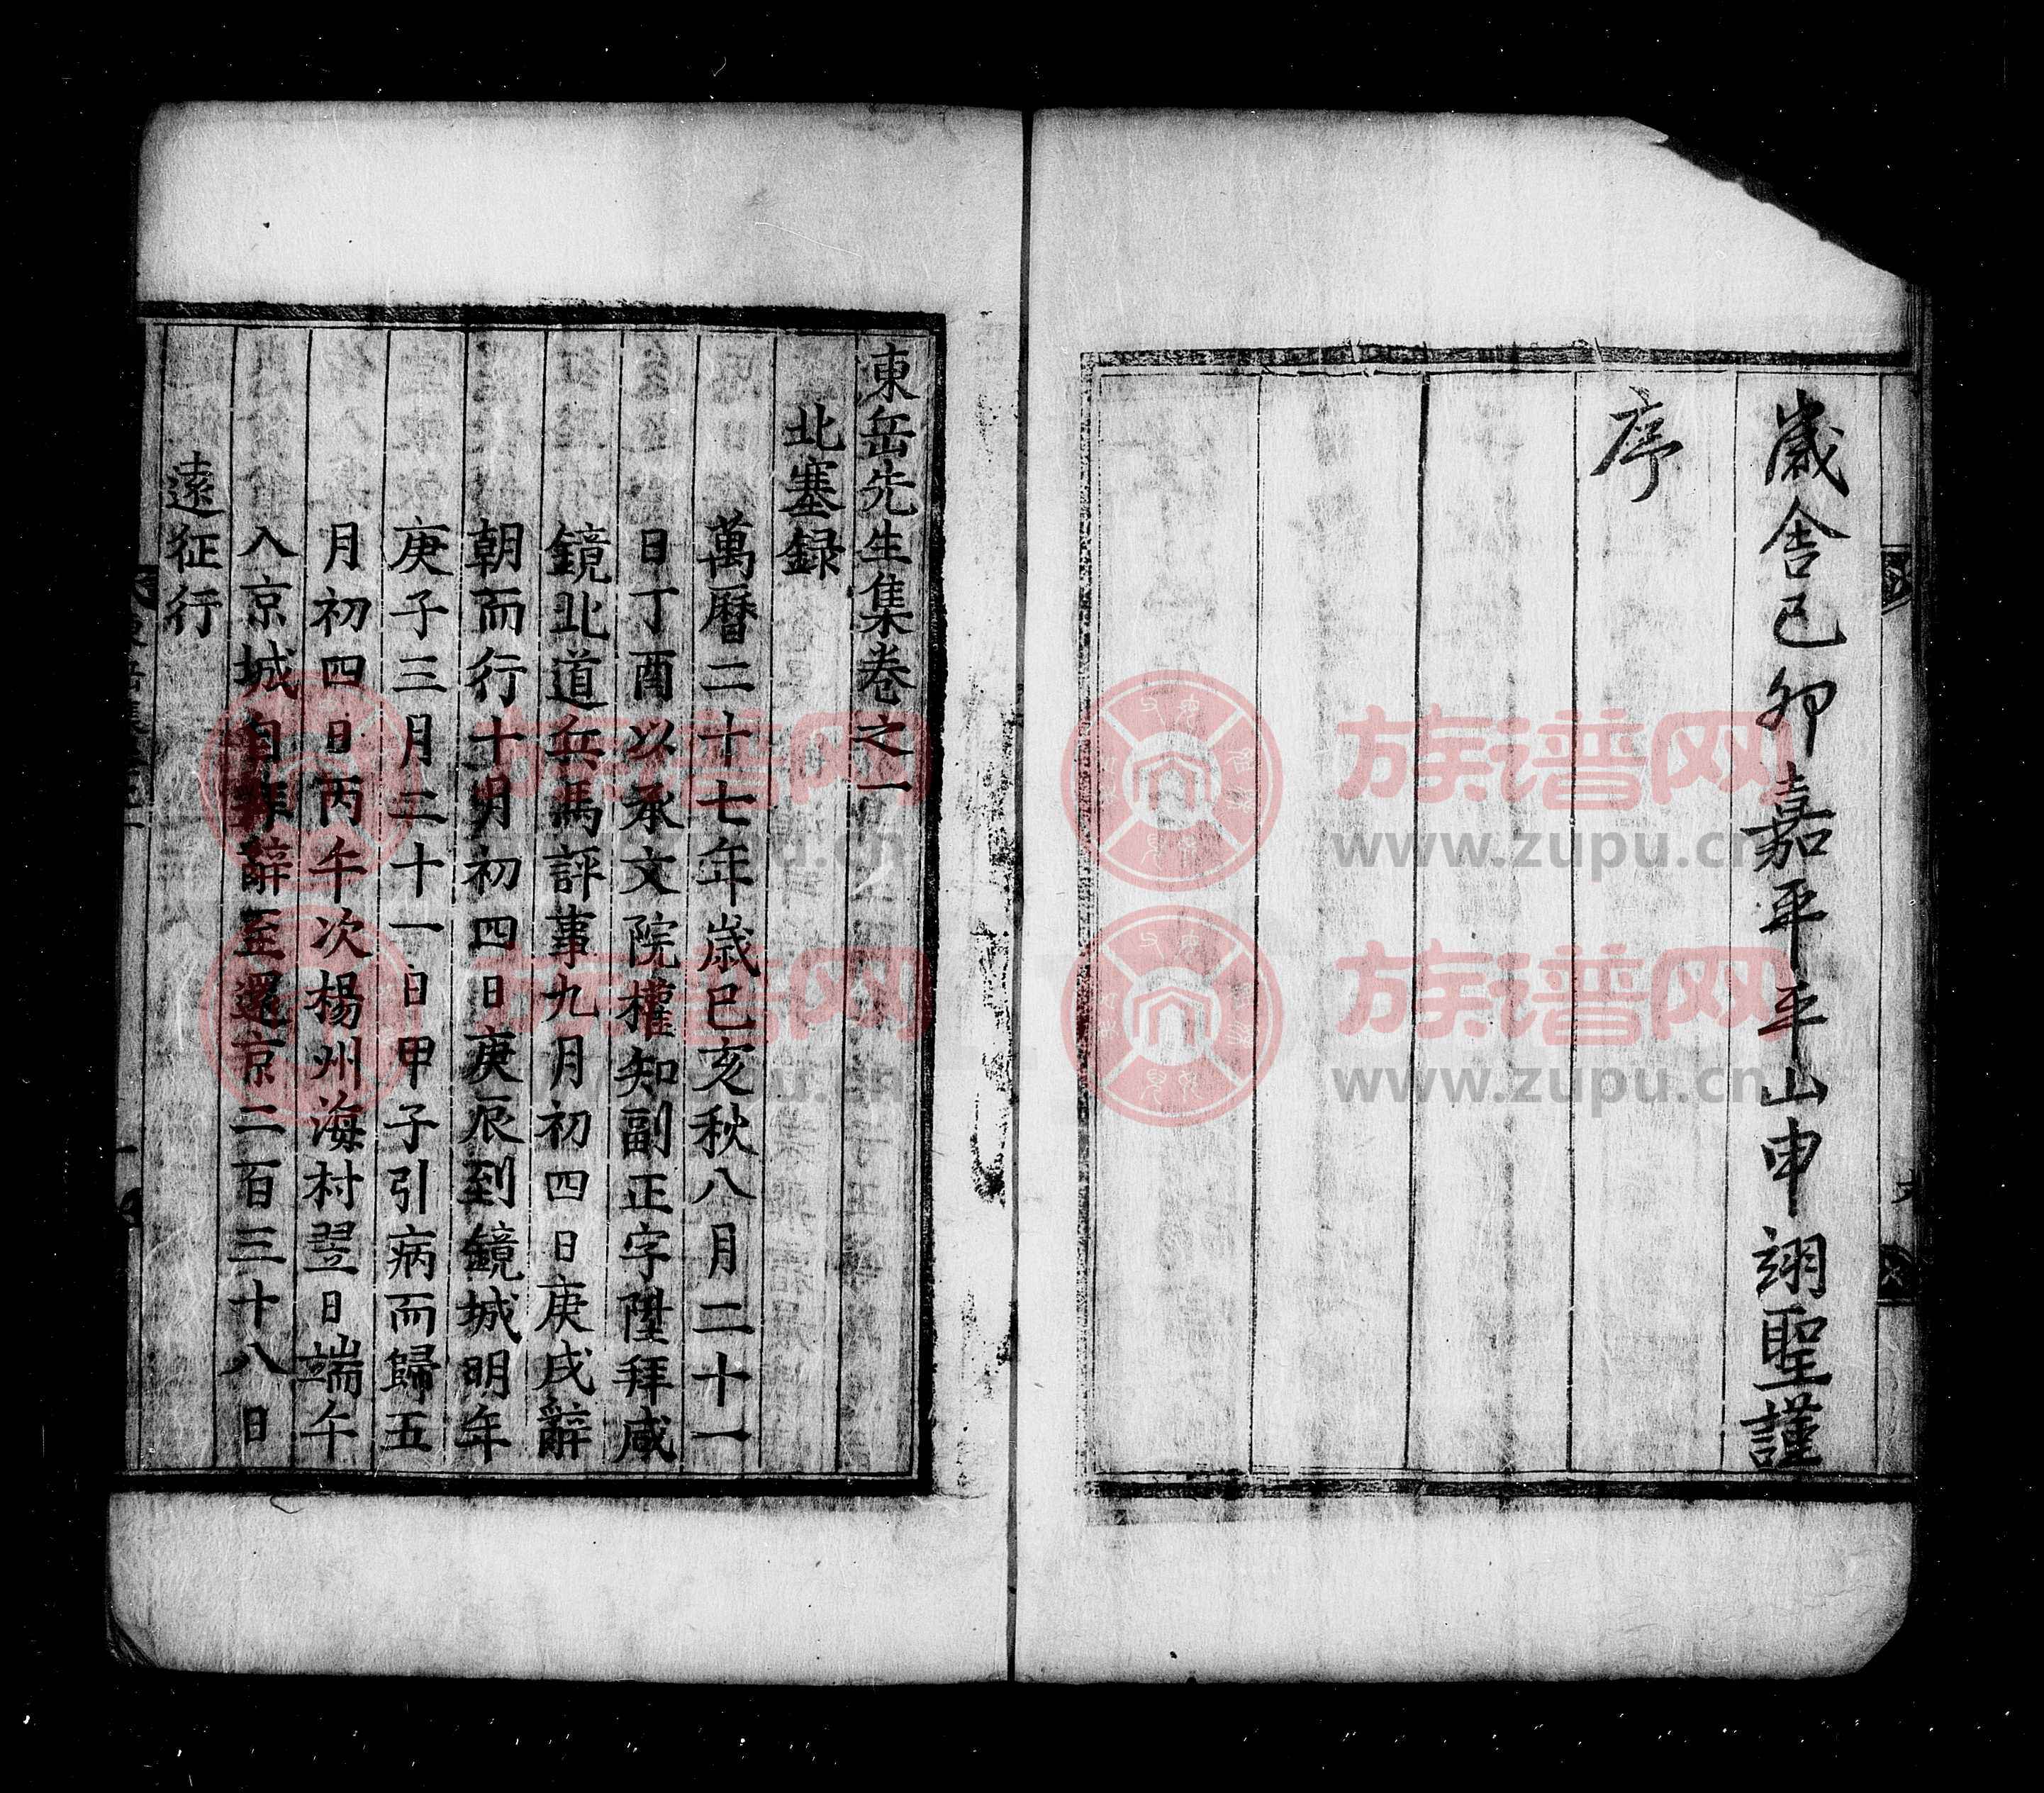 歲舍己卯嘉平平山申翊聖謹
序
東岳先生集卷之一
北塞録
萬曆二十七年歲己亥秋八月二十一
日丁酉以承文院權知副正字陞拜咸
鏡北道兵馬評事九月初四日庚戌辭
朝而行十月初四日庚辰到鏡城明年
庚子三月二十一日甲子引病而歸五
月初四日丙午次楊州海村翌日端午
入京城自拜辭至還京二百三十八日
遠征行
族谱网
www.zupu.cn
族谱网
www.zupu.cn
族谱网
族谱网